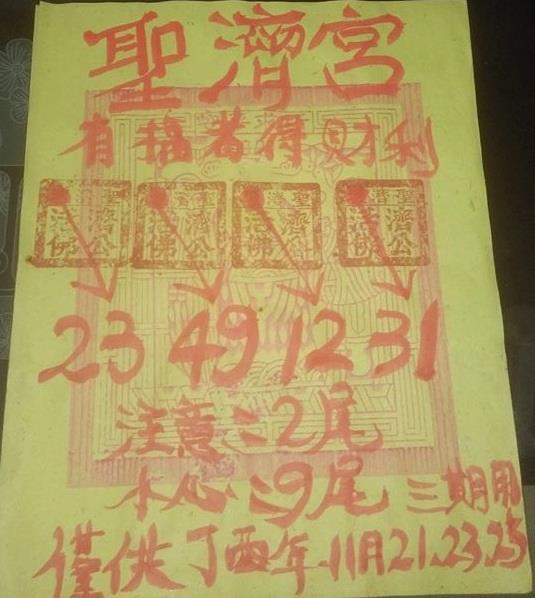 聖濟宮
有福者得財利
聖濟 濟公活佛 聖濟 濟公活佛 聖濟 濟公活佛 聖濟 濟公活佛
23 49 12 31
注意:2尾
小心:9尾 三期用
僅供丁酉年.11月21.23.25